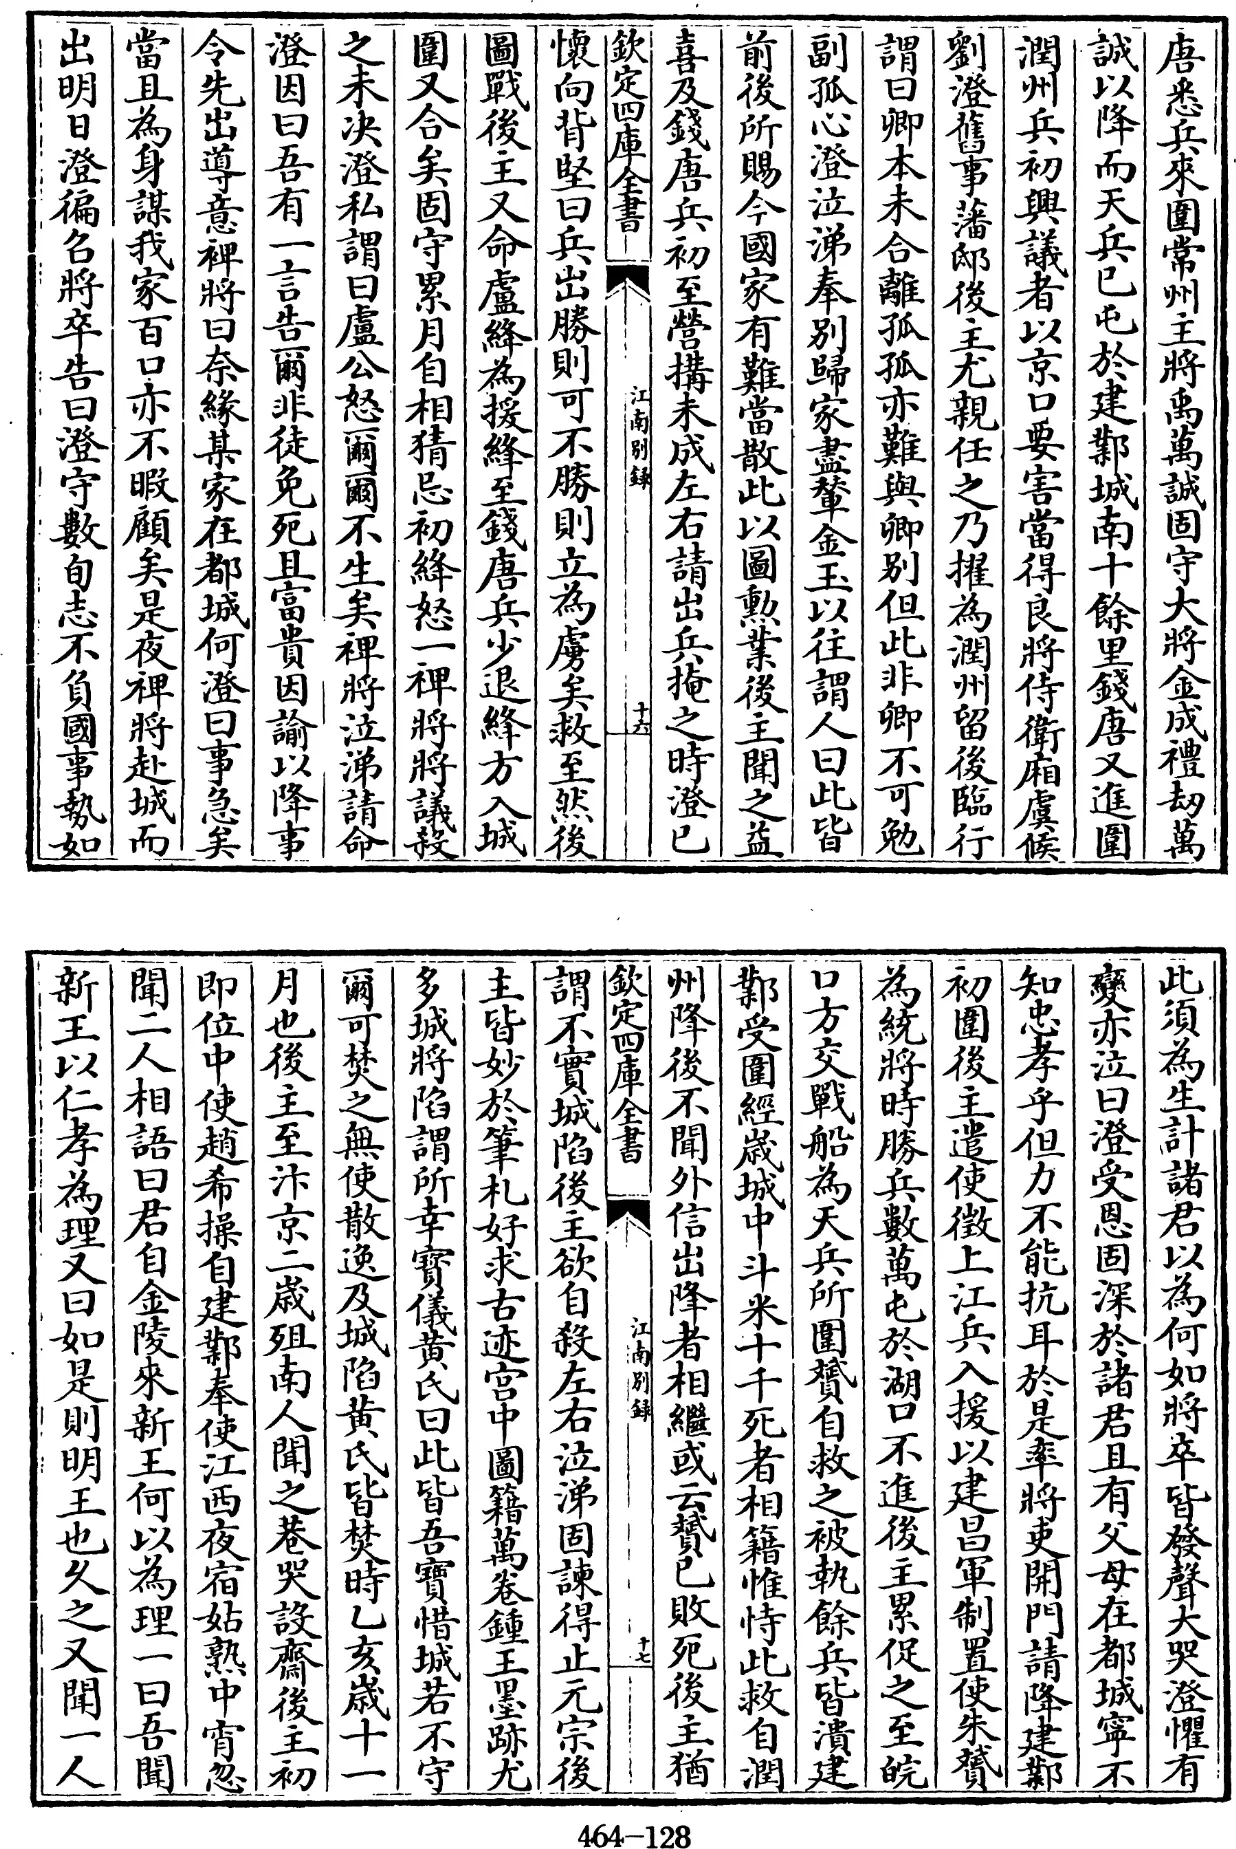 唐悉兵來圍常州主將禹萬誠固守大將金成禮劫萬
誠以降而天兵已屯於建鄴城南十餘里錢唐又進圍
潤州兵初興議者以京口要害當得良將侍衛廂虞候
劉澄舊事藩邸後主尤親任之乃擢為潤州留後臨行
謂曰卿本未合離孤孤亦難與卿別但此非卿不可勉
副孤心澄泣涕奉別歸家盡輦金玉以往謂人曰此皆
前後所賜今國家有難當散此以圖勲業後主聞之益
喜及錢唐兵初至營搆未成左右請出兵掩之時澄已
欽定四庫全書
江南別錄
十六
懷向背堅曰兵出勝則可不勝則立為虜矣救至然後
圖戰後主又命盧絳為援絳至錢唐兵少退絳方入城
圍又合矣固守累月自相猜忌初絳怒一禆將將議殺
之未決澄私謂曰盧公怒爾爾不生矣禆將泣涕請命
澄因曰吾有一言告爾非徒免死且富貴因諭以降事
令先出導意禆將曰奈緣某家在都城何澄曰事急矣
當且為身謀我家百口亦不暇顧矣是夜禆將赴城而
出明日澄徧名將卒告曰澄守數旬志不負國事勢如
此須為生計諸君以為何如將卒皆發聲大哭澄懼有
變亦泣曰澄受恩固深於諸君且有父母在都城寧不
知忠孝乎但力不能抗耳於是率將吏開門請降建鄴
初圍後主遣使徵上江兵入援以建昌軍制置使朱贇
為統將時勝兵數萬屯於湖口不進後主累促之至皖
口方交戰船為天兵所圍贇自救之被執餘兵皆潰建
鄴受圍經歲城中斗米十千死者相籍惟恃此救自潤
州降後不聞外信出降者相繼或云贇已敗死後主猶
欽定四庫全書
江南別錄
十七
謂不實城陷後主欲自殺左右泣涕固諫得止元宗後
主皆妙於筆札好求古迹宮中圖籍萬卷鍾王墨跡尤
多城將陷謂所幸寶儀黄氏曰此皆吾寶惜城若不守
爾可焚之無使散逸及城陷黄氏皆焚時乙亥歲十一
月也後主至汴京二歲殂南人聞之巷哭設齋後主初
即位中使趙希操自建鄴奉使江西夜宿姑熟中宵忽
聞二人相語曰君自金陵來新王何以為理一曰吾聞
新王以仁孝為理又曰如是則明王也久之又聞一人
464-128